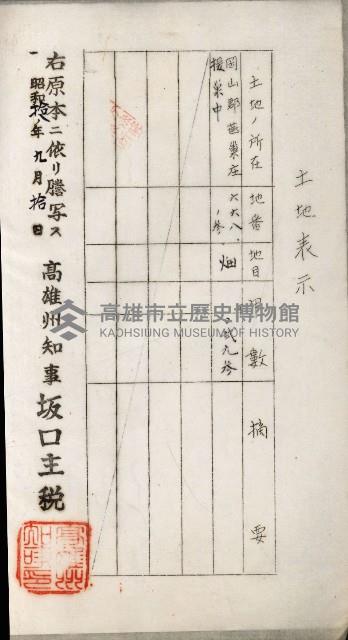 土地表示
土地ノ所在
地番
地目
甲數
摘要
岡山郡燕巢庄
援巢中
六六八ノ叁
畑
貳九叁
右原本ニ依リ謄写ス
昭和拾一年九月拾日
高雄州知事坂口主税
高雄市立歷史博物館
KAOHSIUNG MUSEUM OF HISTORY